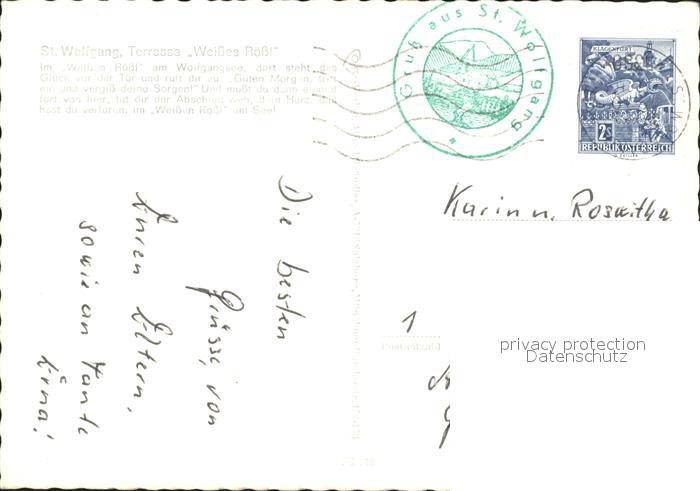 St. Wolfgang, Terrasse „Weißes Rößl"
Im „Weißen Rößl" am Wolfgangsee, dort steht das
Glück vor der Tür und ruft dir zu „Guten Morgen, tritt
ein und vergiß deine Sorgen!" Und mußt du dann einmal
fort von hier, tut dir der Abschied weh, dein Herz, das
hast du verloren, im „Weißen Rößl" am See!
Gruß aus St. Wolfgang
KLAGENFURT
2S
REPUBLIK ÖSTERREICH
Karin u. Roswitha
1
Postleitzahl
privacy protection
Datenschutz
Die besten
Grüsse, von
Euren Eltern,
sowie an Tante
Erna!